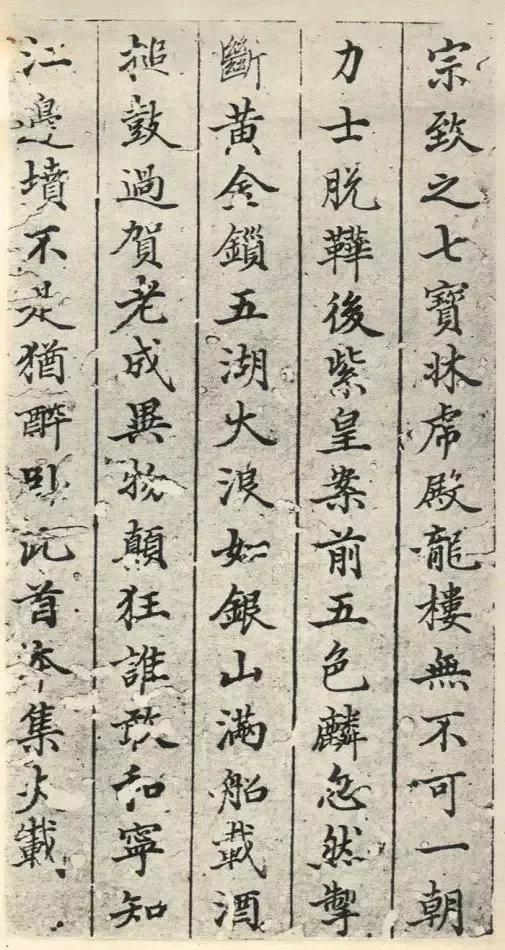 宗致之七寶牀虎殿龍樓無不可一朝
力士脱鞾後紫皇案前五色麟忽然掣
斷黄金鎖五湖大浪如銀山滿船載酒
搥鼓過賀老成異物顛狂誰敢和寧知
江邊墳不是猶醉卧此首本集失載